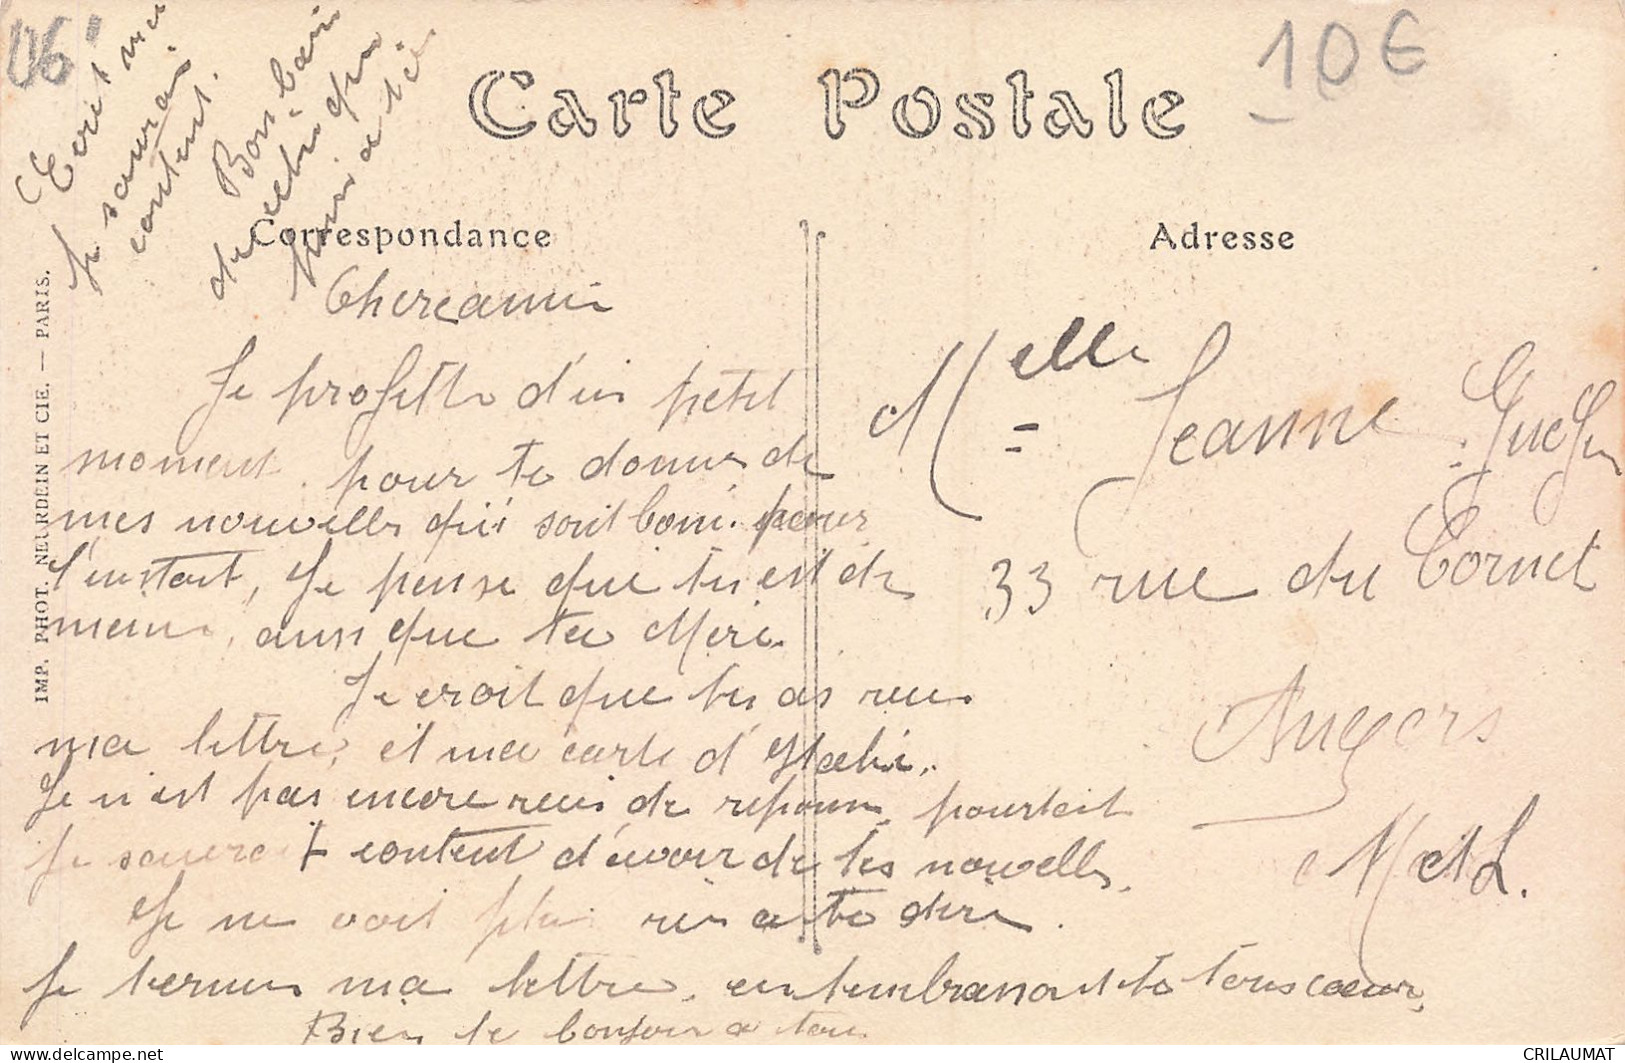 06
10 €
Ecrit moi
je saurais
content.
Bon
Carte Postale
Correspondance
Adresse
IMP. PHOT. NEURDEIN ET CIE. — PARIS.
Chere amie
Je profette d'un petit
moment pour te donner de
mes nouvelles qui sont bone pour
l'instant, Je pense que tu est de
meme, aussi que ta Mere.
Je croit que tu as reçu
ma lettre, et ma carte d'
Je n'est pas encore recu de reponse, pourtait
je saurait content d'avoir de tes nouvelles.
Je ne voit plus rien a te dire.
Je termine ma lettre, en t'embrassant de tous coeur,
Bien le bonjour a ton
Melle Jeanne
33 rue du Cornet
Angers
M et L.
CRILAUMAT